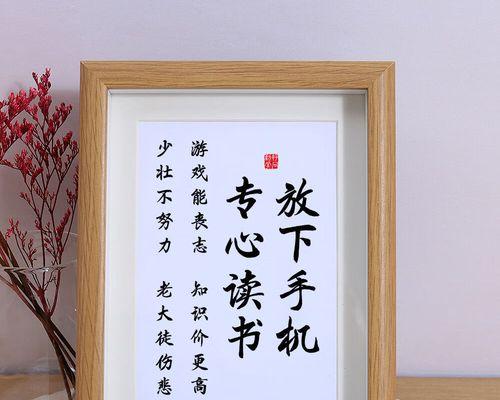 放下手机
专心读书
游戏能丧志 知识价更高
少壮不努力 老大徒伤悲